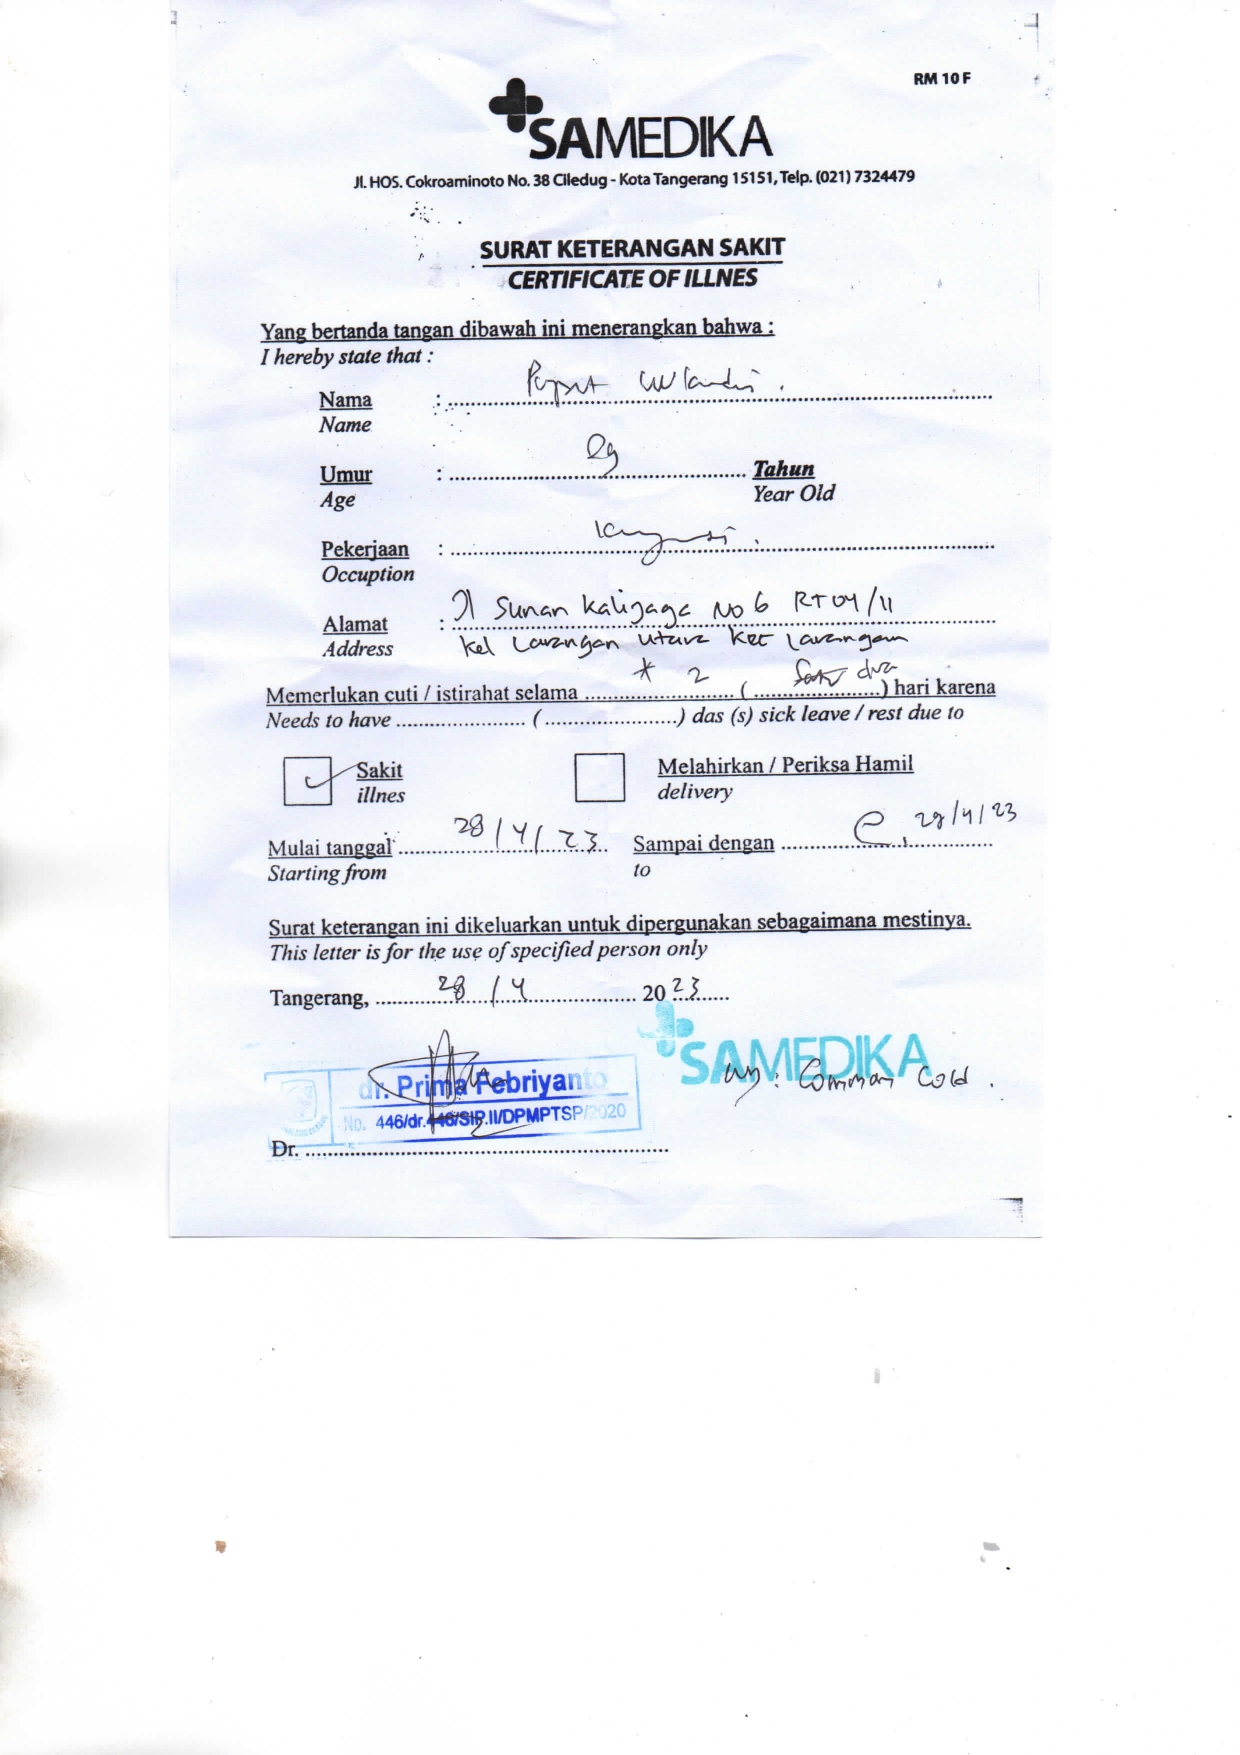 RM 10 F
SAMEDIKA
Jl. HOS. Cokroaminoto No. 38 Ciledug - Kota Tangerang 15151, Telp. (021) 7324479
SURAT KETERANGAN SAKIT
CERTIFICATE OF ILLNES
Yang bertanda tangan dibawah ini menerangkan bahwa :
I hereby state that :
Nama : Wlandri
Name
Umur : 29 Tahun
Age Year Old
Pekerjaan :
Occuption
Alamat : Jl Sunan Kalijaga No 6 RT 04/11
Address Kel Larangan Utara Kec Larangan
Memerlukan cuti / istirahat selama 2 ( dua ) hari karena
Needs to have ( ) das (s) sick leave / rest due to
Sakit Melahirkan / Periksa Hamil
illnes delivery
Mulai tanggal 28/4/23 Sampai dengan 29/4/23
Starting from to
Surat keterangan ini dikeluarkan untuk dipergunakan sebagaimana mestinya.
This letter is for the use of specified person only
Tangerang, 28/4 2023
SAMEDIKA
dr. Prima Febriyanto : Common Cold.
No. 446/dr.446/SIP.II/DPMPTSP/2020
Dr.